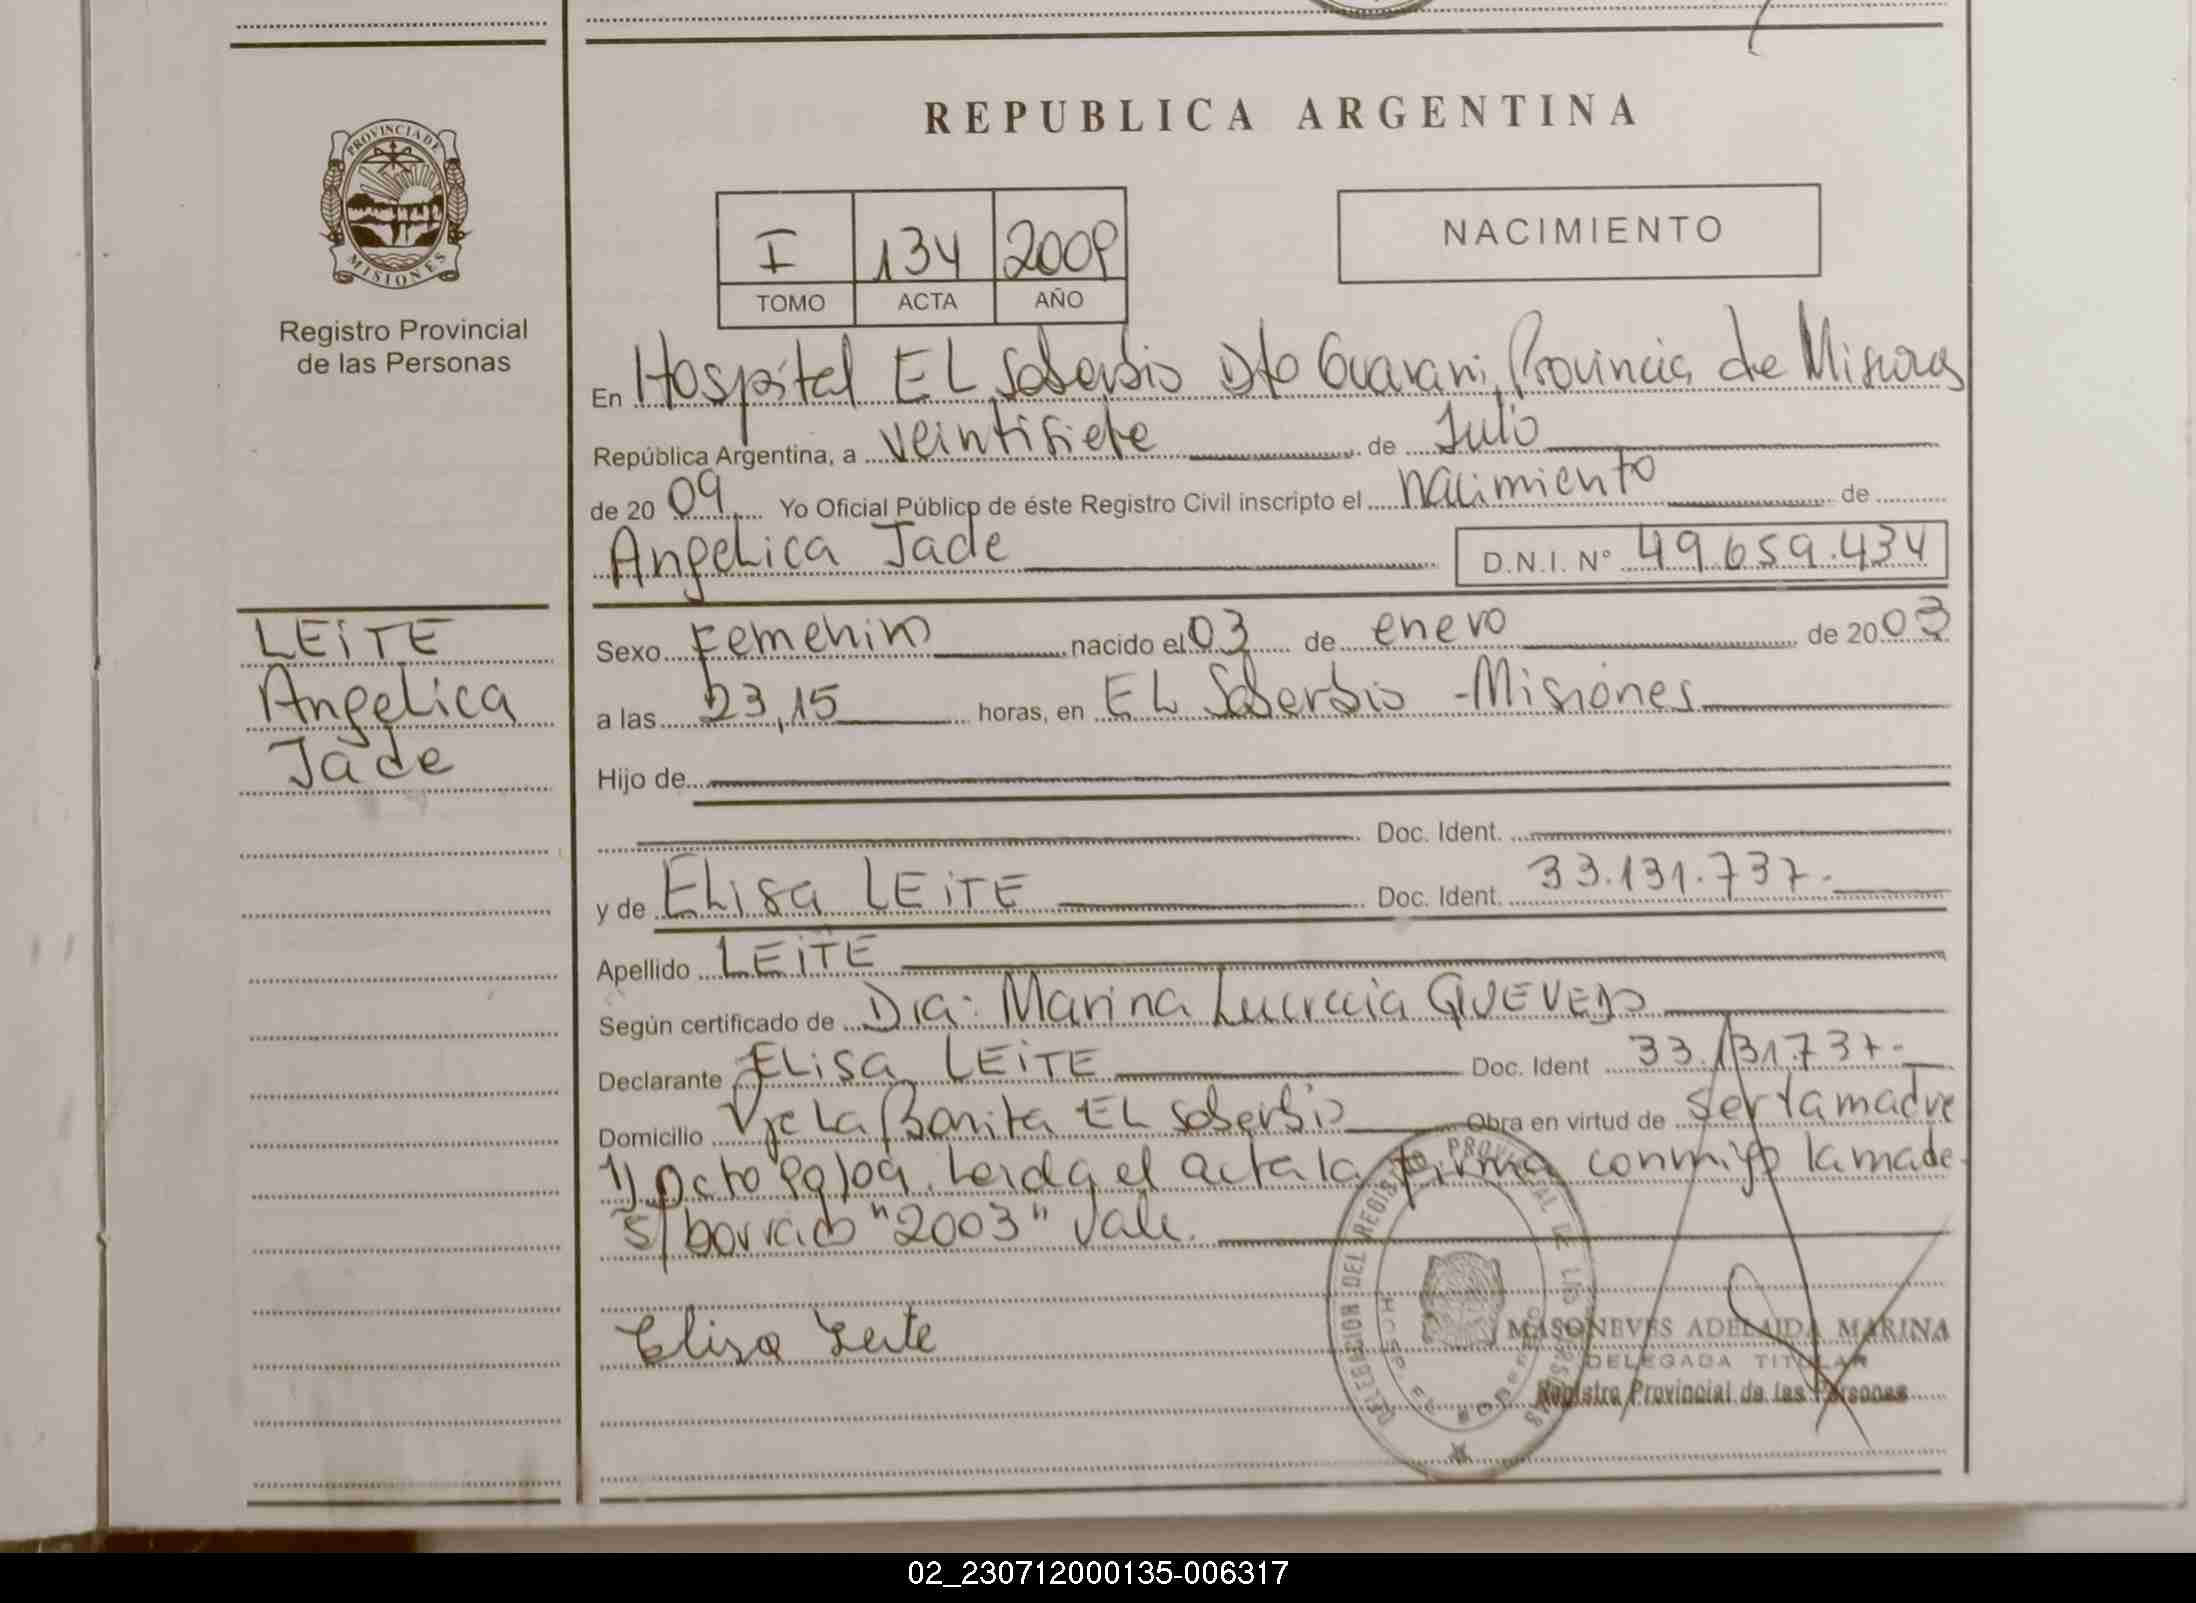 REPUBLICA ARGENTINA
PROVINCIA DE
MISIONES
Registro Provincial
de las Personas
I 134 2009
TOMO ACTA AÑO
NACIMIENTO
En Hospital EL Soberbio Dto Guarani, Provincia de Misiones
República Argentina, a veintisiete de Julio
de 20 09 Yo Oficial Público de éste Registro Civil inscripto el nacimiento de
Angelica Jade D.N.I. N° 49.659.434
LEiTE
Angelica
Jade
Sexo Femenino nacido el 03 de enero de 20 03
a las 23,15 horas, en EL Soberbio - Misiones
Hijo de
Doc. Ident.
y de ELisa LEiTE Doc. Ident. 33.131.737.-
Apellido LEiTE
Según certificado de Dra: Marina Lucrecia QUEVEDO
Declarante ELisa LEiTE Doc. Ident 33.131.737.-
Domicilio Pje La Bonita EL Soberbio Obra en virtud de ser la madre
1) Dcto 90/09. Leida el acta la firma conmigo la madre.
s/borrado "2003" Vale.
Elisa Leite
DELEGACION DEL REGISTRO PROVINCIAL DE LAS PERSONAS
HOSP. EL SOBERBIO
MASONEVES ADELAIDA MARINA
DELEGADA TITULAR
Registro Provincial de las Personas
02_230712000135-006317